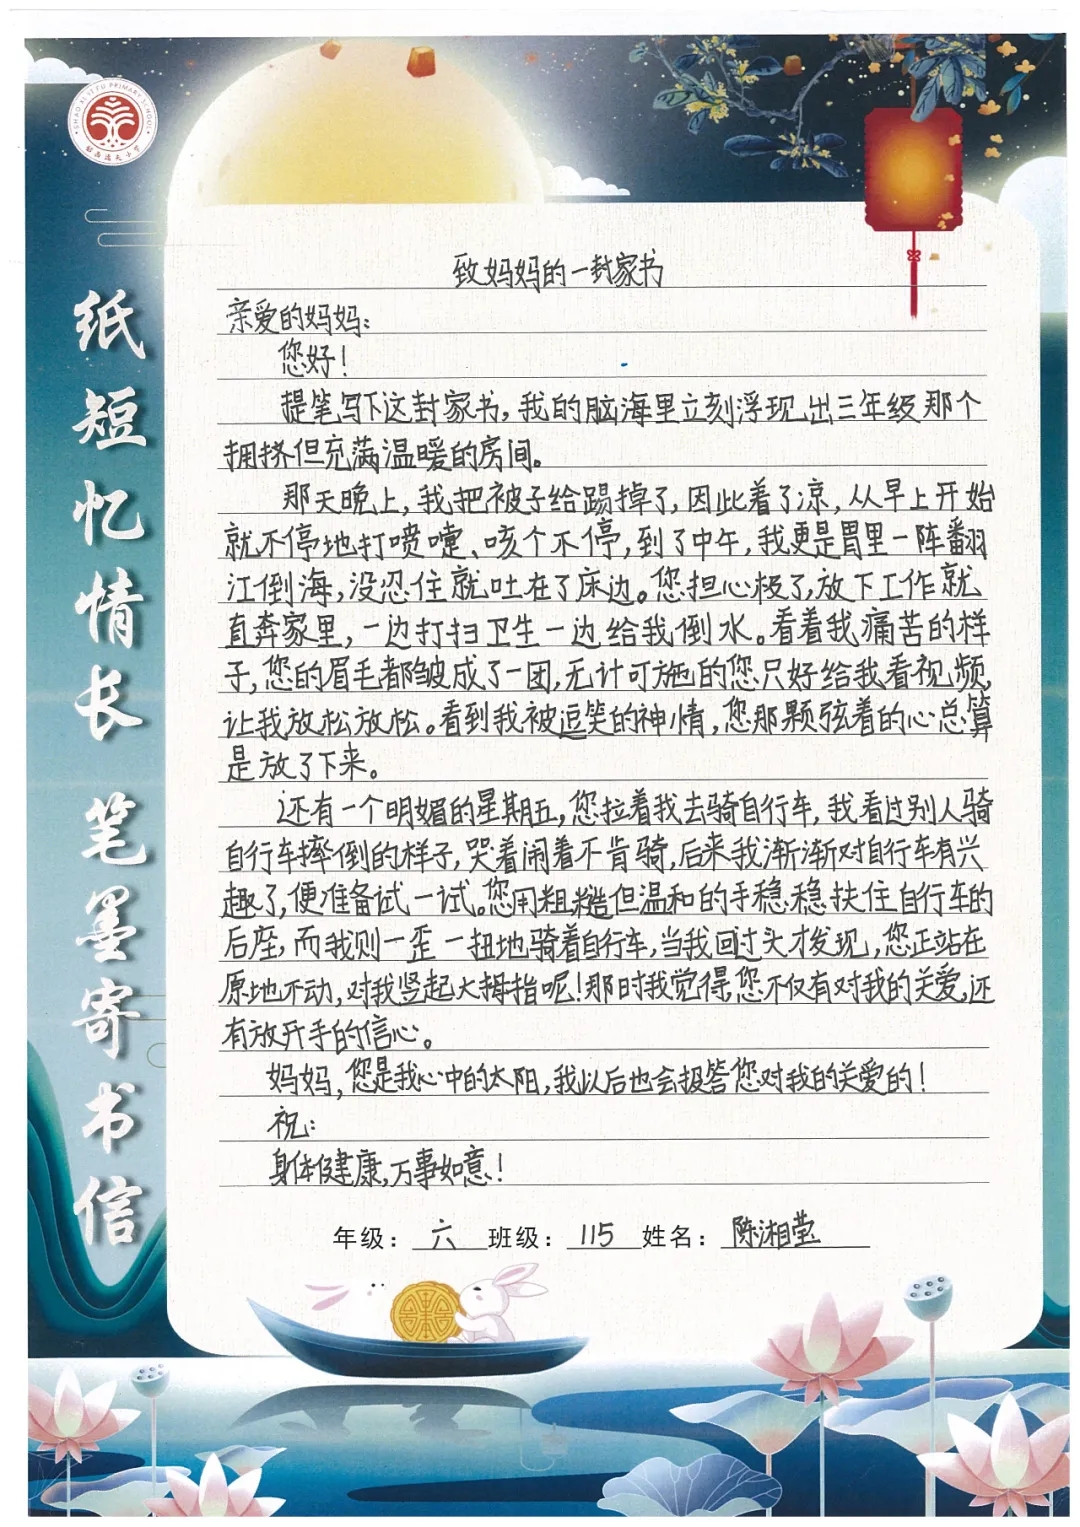 SHAO XI YI FU PRIMARY SCHOOL
纸短忆情长 笔墨寄书信
致妈妈的一封家书
亲爱的妈妈:
您好!
提笔写下这封家书,我的脑海里立刻浮现出三年级那个
拥挤但充满温暖的房间。
那天晚上,我把被子给踢掉了,因此着了凉,从早上开始
就不停地打喷嚏、咳个不停,到了中午,我更是胃里一阵翻
江倒海,没忍住就吐在了床边。您担心极了,放下工作就
直奔家里,一边打扫卫生一边给我倒水。看着我痛苦的样
子,您的眉毛都皱成了一团,无计可施的您只好给我看视频,
让我放松放松。看到我被逗笑的神情,您那颗弦着的心总算
是放了下来。
还有一个明媚的星期五,您拉着我去骑自行车,我看过别人骑
自行车摔倒的样子,哭着闹着不肯骑,后来我渐渐对自行车有兴
趣了,便准备试一试。您用粗糙但温和的手稳稳扶住自行车的
后座,而我则一歪一扭地骑着自行车,当我回过头才发现,您正站在
原地不动,对我竖起大拇指呢!那时我觉得,您不仅有对我的关爱,还
有放开手的信心。
妈妈,您是我心中的太阳,我以后也会报答您对我的关爱的!
祝:
身体健康,万事如意!
年级: 六 班级: 115 姓名: 陈湘莹